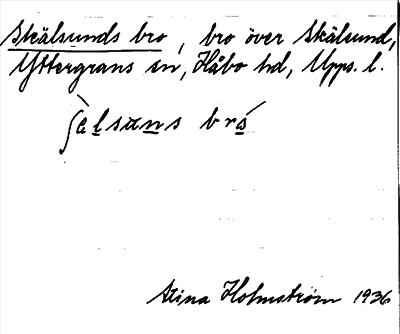 Skälsunds bro, bro över Skälsund,
Yttergrans sn, Håbo hd, Upps. l.
ʃèlsans bró
Stina Holmström 1936